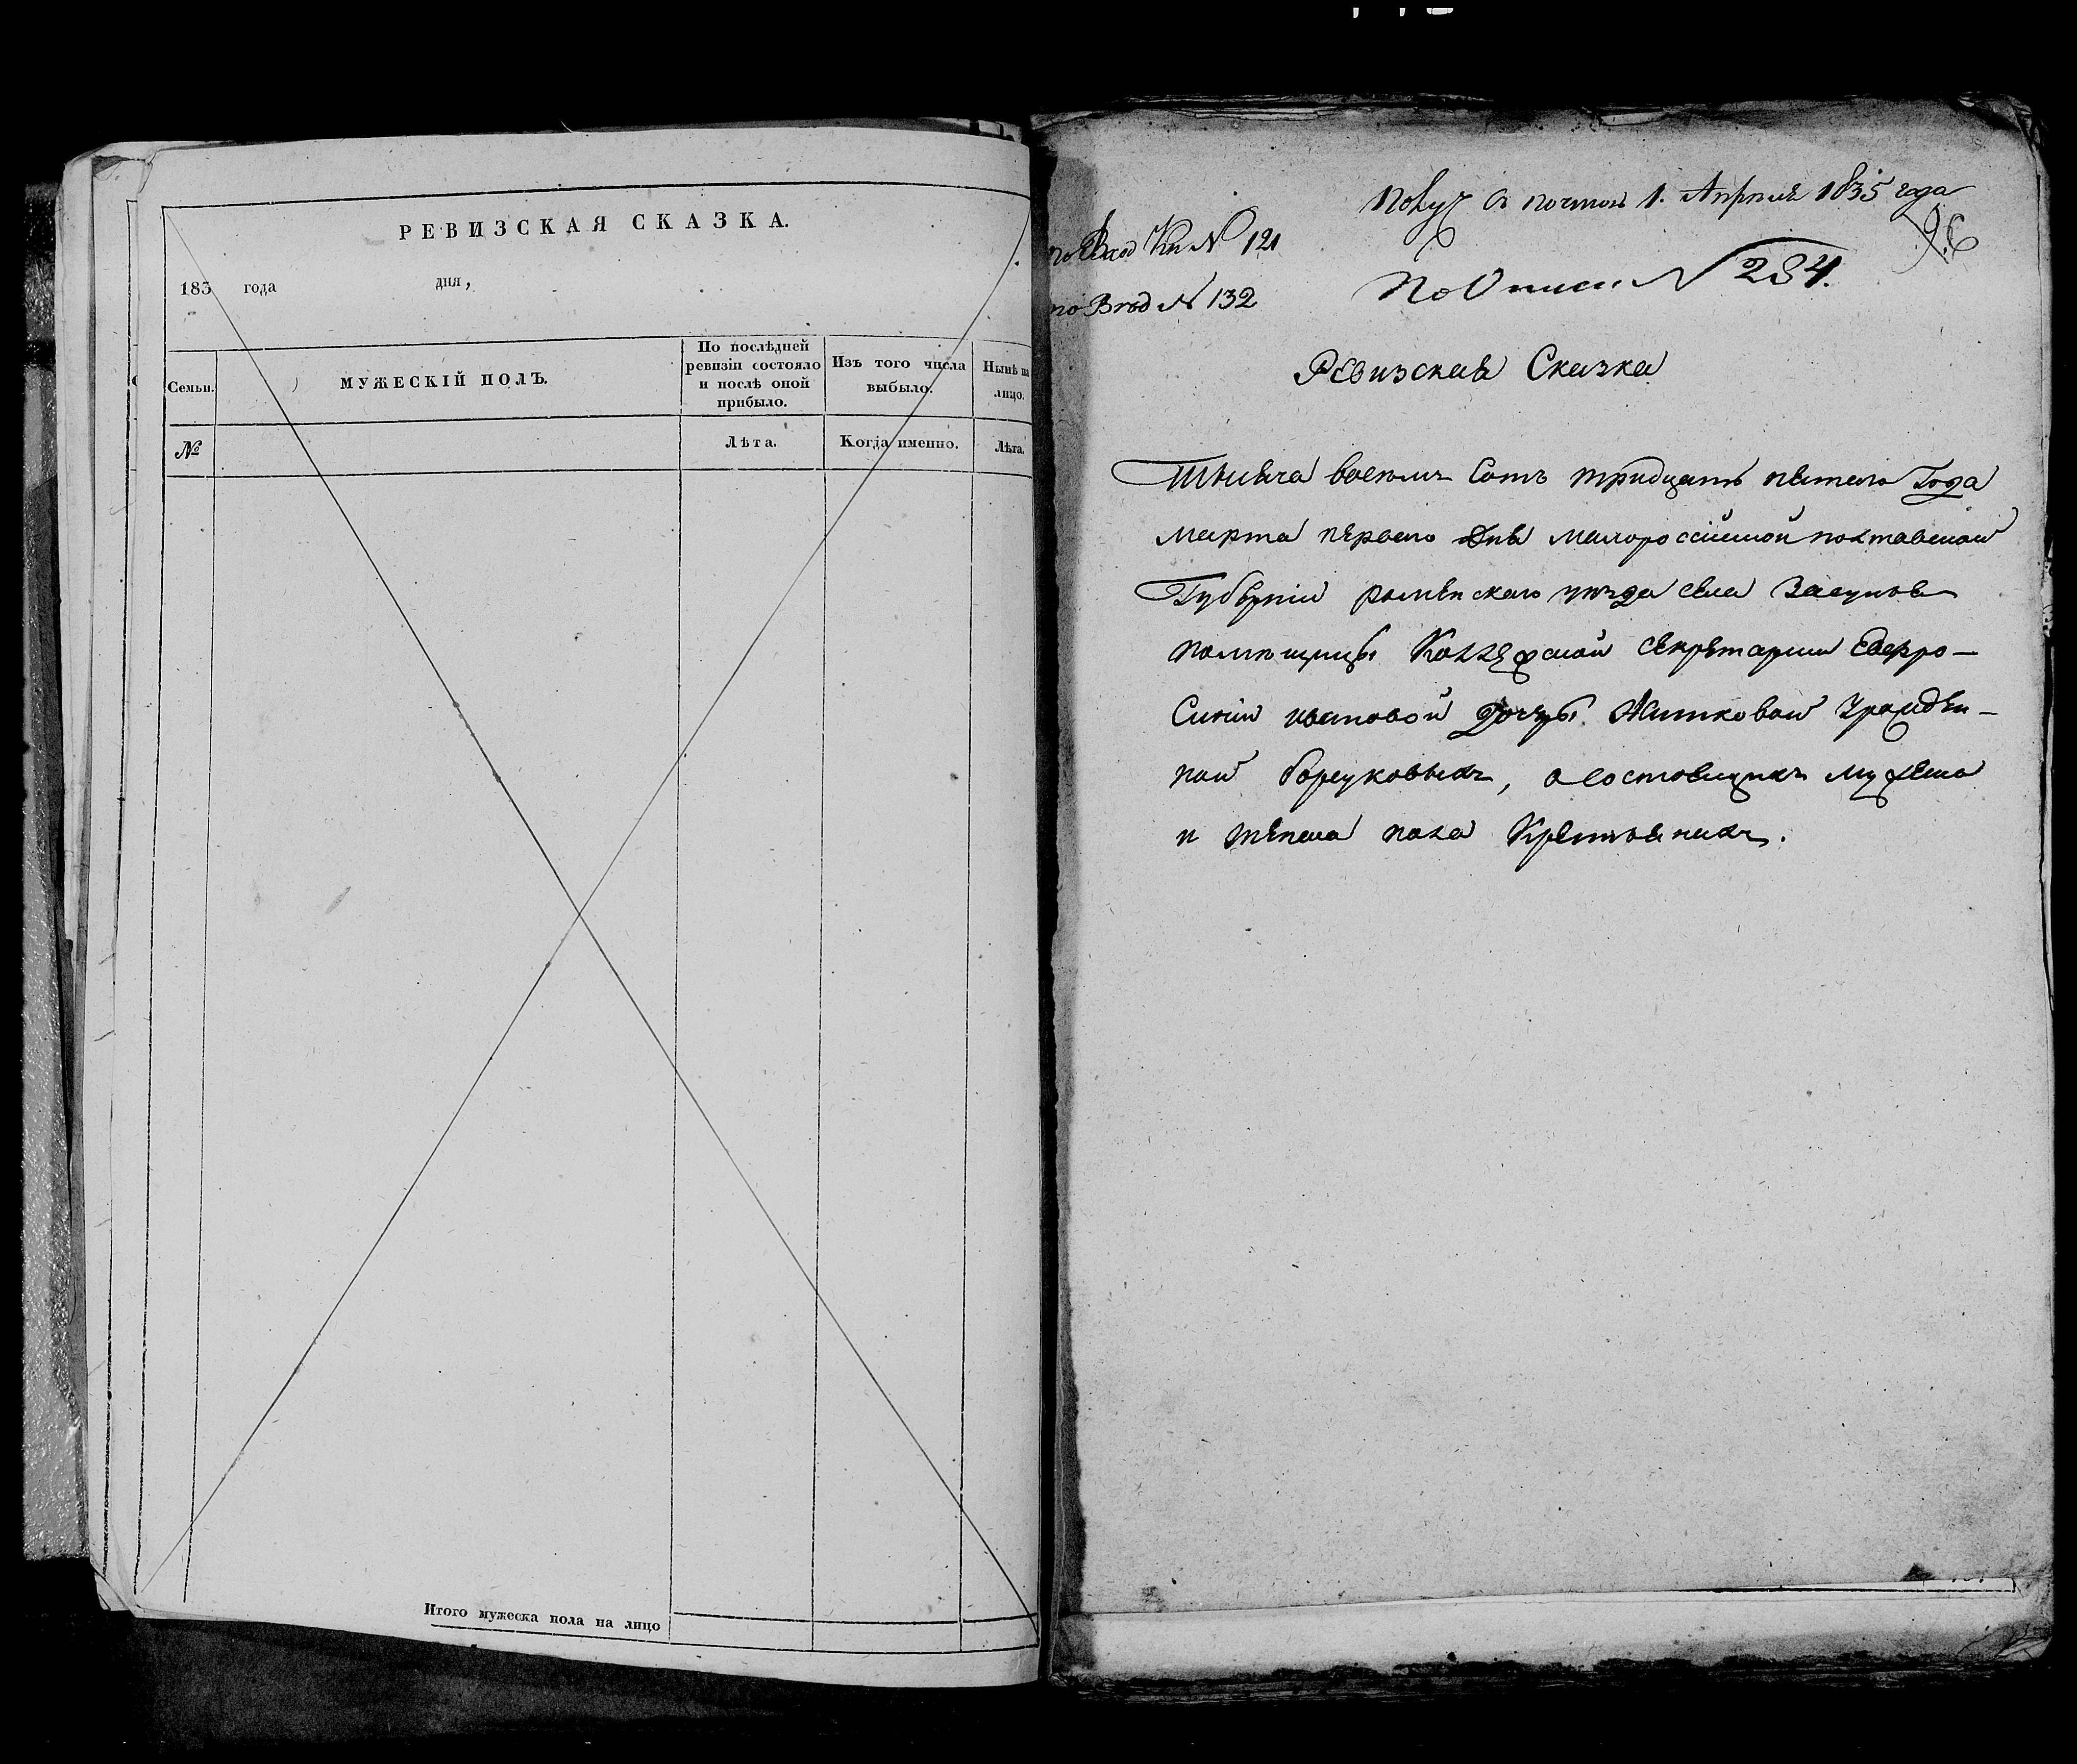 РЕВИЗСКАЯ СКАЗКА.
183 года дня,
Семьи.
МУЖЕСКІЙ ПОЛЪ.
По послѣдней
ревизіи состояло
и послѣ оной
прибыло.
Изъ того числа
выбыло.
Нынѣ на
лицо.
№
Лѣта.
Когда именно.
Лѣта.
Итого мужеска пола на лицо
Получ съ почтою 1. Апреля 1835 года
96
по Вход Кн № 121
По Описи № 234.
по Вход № 132
Ревизская Сказка
Тысяча восемь Сотъ тридцать пятаго Года
марта перваго дня малороссійской полтавской
Губерніи роменскаго уезда села Засулья
помещицы Коллежской секретарши Евфро-
Синіи ивановой дочери Житковой урожден-
ной борсуковыхъ, о состоящихъ мужеска
и женска пола Крестьянахъ.